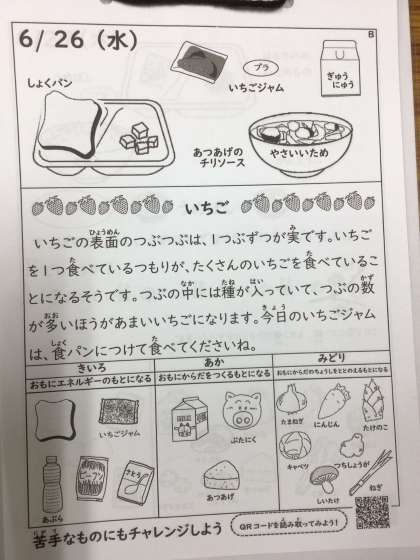 6/26（水）
B
プラ
いちごジャム
ぎゅう
にゅう
しょくパン
あつあげの
チリソース
やさいいため
いちご
いちごの表面のつぶつぶは、1つぶずつが実です。いちご
を1つ食べているつもりが、たくさんのいちごを食べているこ
とになるそうです。つぶの中には種が入っていて、つぶの数
が多いほうがあまいいちごになります。今日のいちごジャム
は、食パンにつけて食べてくださいね。
きいろ
おもにエネルギーのもとになる
いちごジャム
あぶら
ビーフン
さとう
あか
おもにからだをつくるもとになる
ぶたにく
あつあげ
みどり
おもにからだのちょうしをととのえるもとになる
たまねぎ
にんじん
たけのこ
キャベツ
つちしょうが
しいたけ
ねぎ
苦手なものにもチャレンジしよう
QRコードを読み取ってみよう！